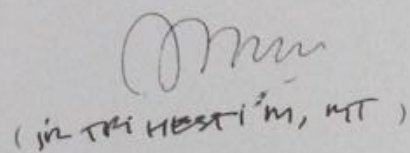 (Ir TRI HESTI M, MT)